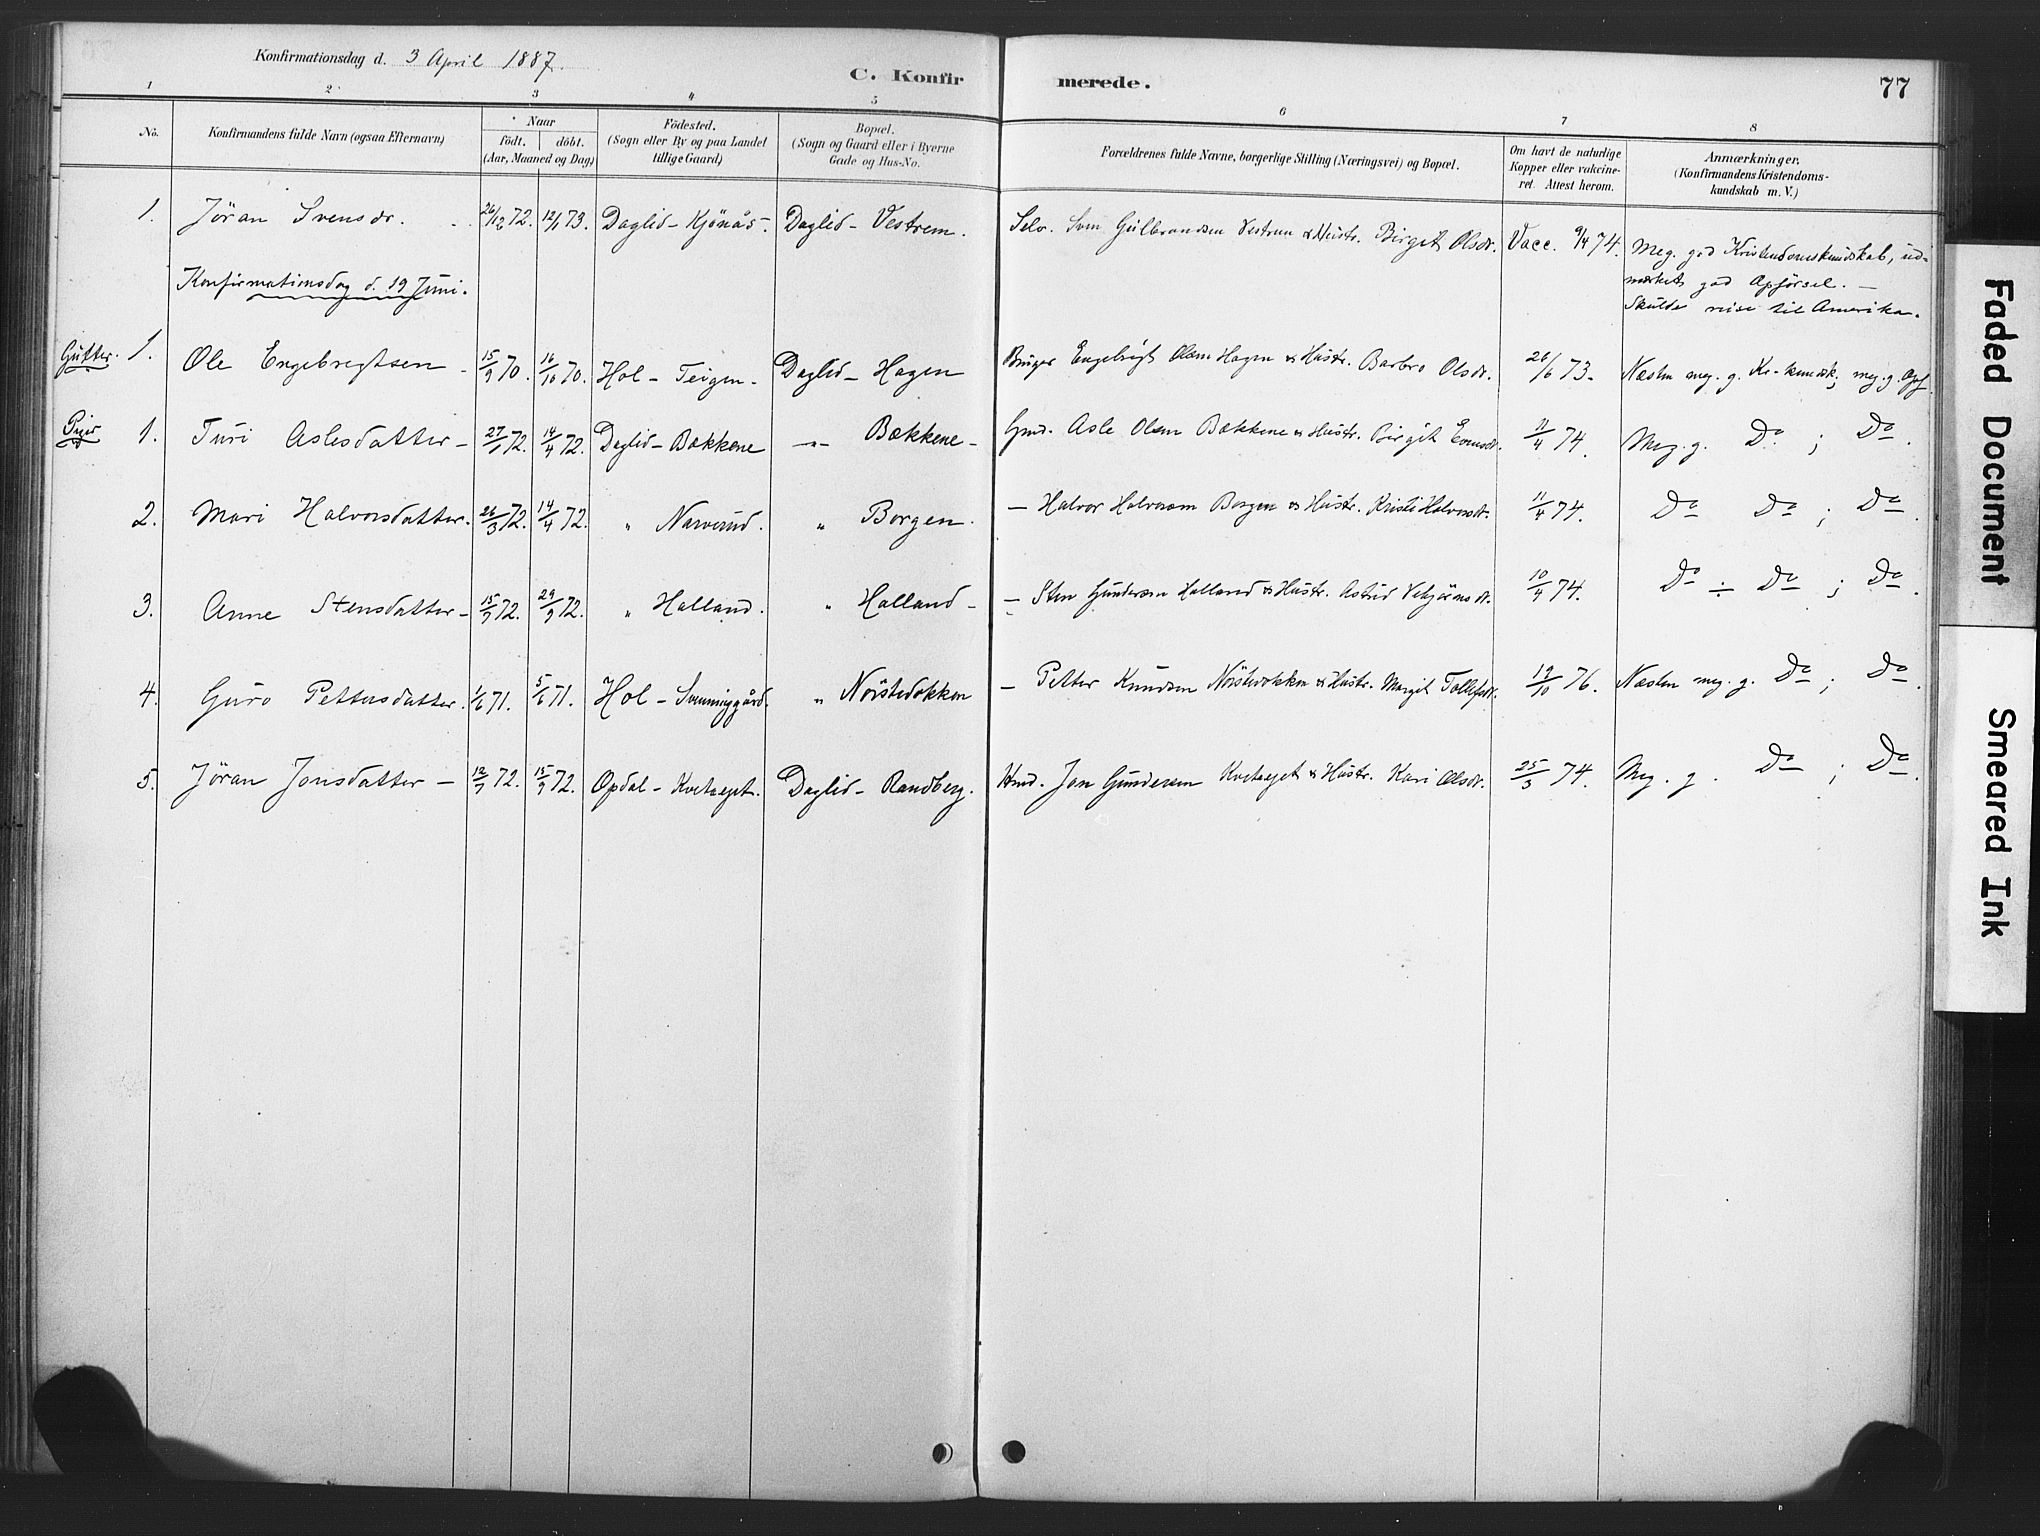 Konfirmationsdag d. 3 April 1887.
C. Konfirmerede.
77
1 2 3 4 5 6 7 8
No. Konfirmandens fulde Navn (ogsaa Efternavn) Naar født. døbt. (Aar, Maaned og Dag) Födested. (Sogn eller By og paa Landet tillige Gaard) Bopæl. (Sogn og Gaard eller i Byerne Gade og Hus-No. Forældrenes fulde Navne, borgerlige Stilling (Næringsvei) og Bopæl. Om havt de naturlige Kopper eller vakcineret. Attest herom. Anmærkninger. (Konfirmandens Kristendomskundskab m. V.)
1. Jöran Svensdr. 26/12 72. 12/1 73. Daglid - Kjönås - Daglid - Vestrem. Selv. Sven Gulbrandsen Vestrem & Hustr. Birgit Olsdr. Vacc. 9/4 74. Meg. god Kristendomskundskab, ud-
mærket god Opførsel. —
Skulde reise til Amerika.
Konfirmationsdag d. 19 Juni.
Gutter. 1. Ole Engebregtsen - 15/9 70. 16/10 70. Hol - Teigen - Daglid - Hagen Engebrigt Olsen Hagen & Hustr. Barbro Olsdr. 26/6 73. Næsten meg. g. Kr. kundsk; meg. g. Opf.
Piger 1. Turi Aslesdatter - 27/ 72. 14/4 72. Daglid - Bækkene -"- Bækkene - Gmd. Asle Olsen Bækkene & Hustr. Birgit 11/4 74. Meg. g. Do ; Do.
2. Mari Halvorsdatter. 26/3 72. 14/4 72. " Narverud. " Borgen. — Halvor Halvorsen Borgen & Hustr. Kristi Halvorsdr. 11/4 74. Do Do ; Do.
3. Anne Stensdatter - 15/9 72. 29/9 72. " Halland. " Halland - — Sten Gundersen Halland & Hustr. Astrid 10/4 74. Do ÷ Do ; Do.
4. Guro Pettersdatter. 1/6 71. 5/6 71. Hol - " Nörstedokken — Petter Knudsen Nörstedokken & Hustr. Margit Tollefsdr. 19/10 76. Næsten meg. g. Do ; Do.
5. Jöran Jonsdatter — 12/9 72. 15/9 72. Opdal - Daglid - Randberg. Hmd. Jon Gundersen & Hustr. Kari Olsdr. 25/3 74. Meg. g. Do ; Do.
Faded Document
Smeared Ink